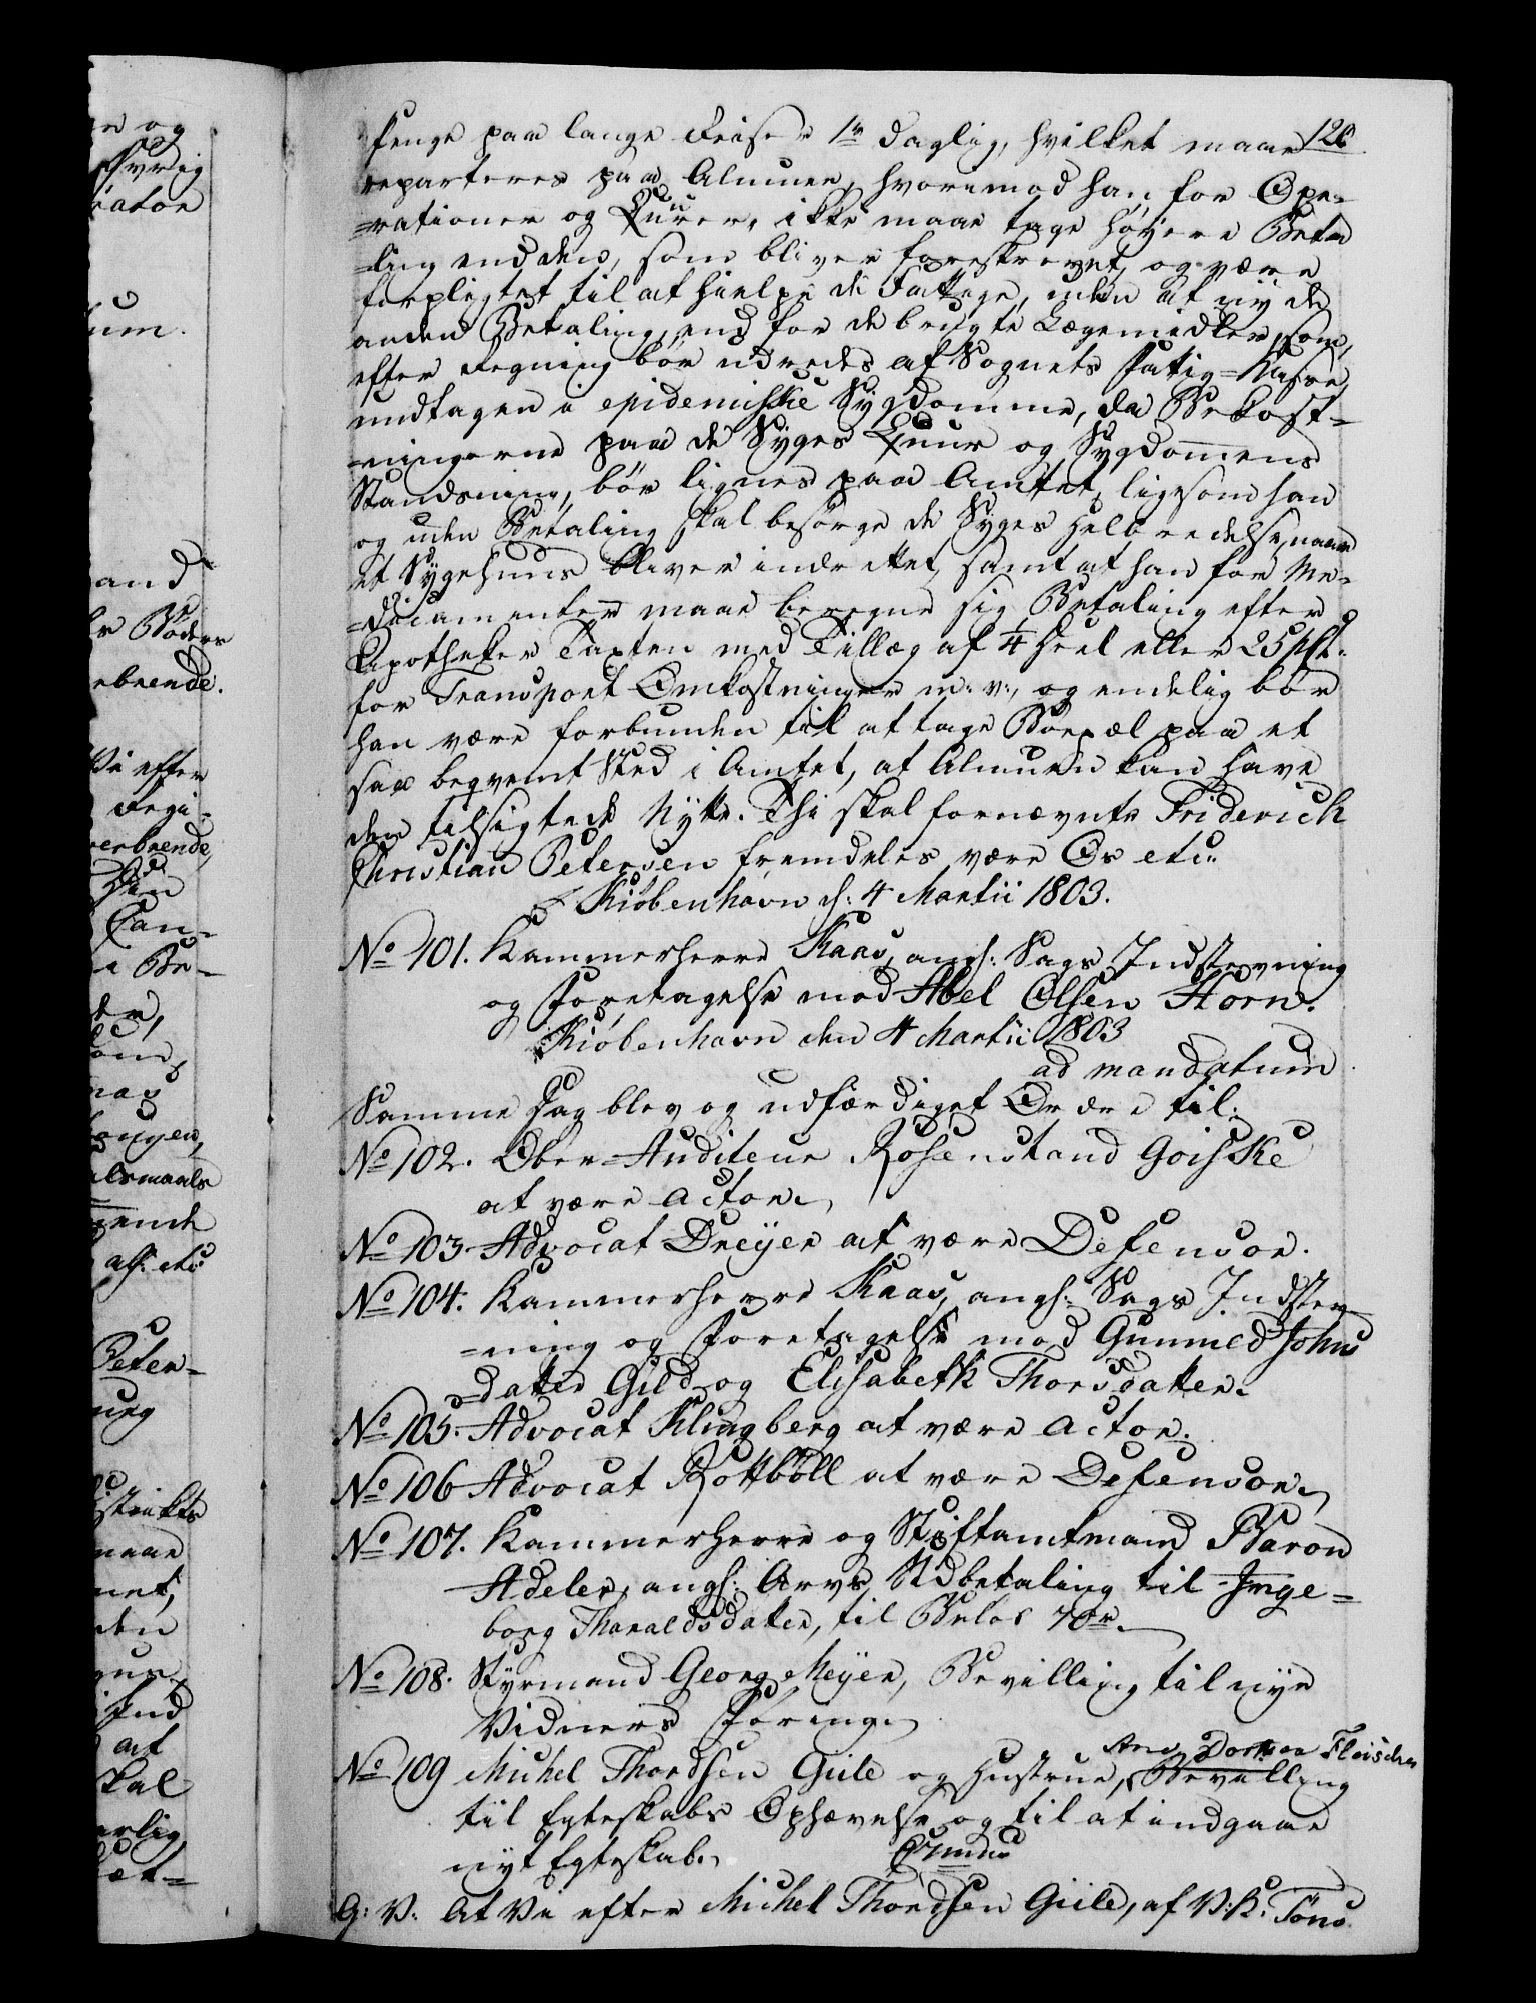 126
penge paa lange Reiser 1 rd daglig, hvilket maae
reparteres paa Almuen, hvorimod han for Ope-
=rationer og Kurer, ikke maae tage høyere Beta
=ling end den, som bliver foreskrevet, og være
forpligtet til at hielpe de Fattige, uden at nyde
anden Betaling, end for de brugte Lægemidler, som,
efter Regning bør udredes af Sognets Fattig-Kasse,
undtagen i epidemiske Sygdomme, da Bekost-
=ningerne paa de Syges Kuur og Sygdommens
Standsning, bør lignes paa Amtet, ligesom han
og uden Betaling skal besørge de Syges Helbredelse, naar
et Sygehuus bliver indrettet, samt at han for Me-
=dicamenter maae beregne sig Betaling efter
Apotheker Taxten med Tillæg af 1/4 Deel eller 25 pCt.
for Transport Omkostninger m: v:, og endelig bør
han være forbunden til at tage Boepæl paa et
saa beqvemt Sted i Amtet, at Almuen kan have
den tilsigtede Nytte. Thi skal fornævnte Friderich
Christian Petersen fremdeles være Os etc:
Kiøbenhavn d: 4 Martii 1803.
No 101. Kammerherre Kaas, angl: Sags Indstevning
og Foretagelse mod Abel Olsen Horn.
Kiøbenhavn den 4 Martii 1803
ad mandatum
Samme Dag blev og udfærdiget Ordre til:
No 102. Ober-Auditeur Rosenstand Goiske
at være Actor.
No 103. Advocat Dreÿer at være Defensor.
No 104. Kammerherre Kaas, angl: Sags Indstev-
=ning og Foretagelse mod Gunnild Johns
=datter Gild og Elisabeth Thorsdatter.
No 105. Advocat Klingberg at være Actor.
No 106 Advocat Rottbøll at være Defensor.
No 107. Kammerherre og Stiftamtmand Baron
Adeler, angl: Arvs Udbetaling til Inge-
borg Tharaldsdatter, til Beløb 70 rd.
No 108. Styrmand Georg Meÿer, Bevilling til nye
Vidners Føring.
Ane Dorthea Fleischer
No 109 Michel Thordsen Giile og Hustrue, Bevilling
til Egteskabs Ophævelse og til at indgaae
nyt Egteskab.
G: V: At Vi efter Michel Thordsen Giile, af V: K: Tøns